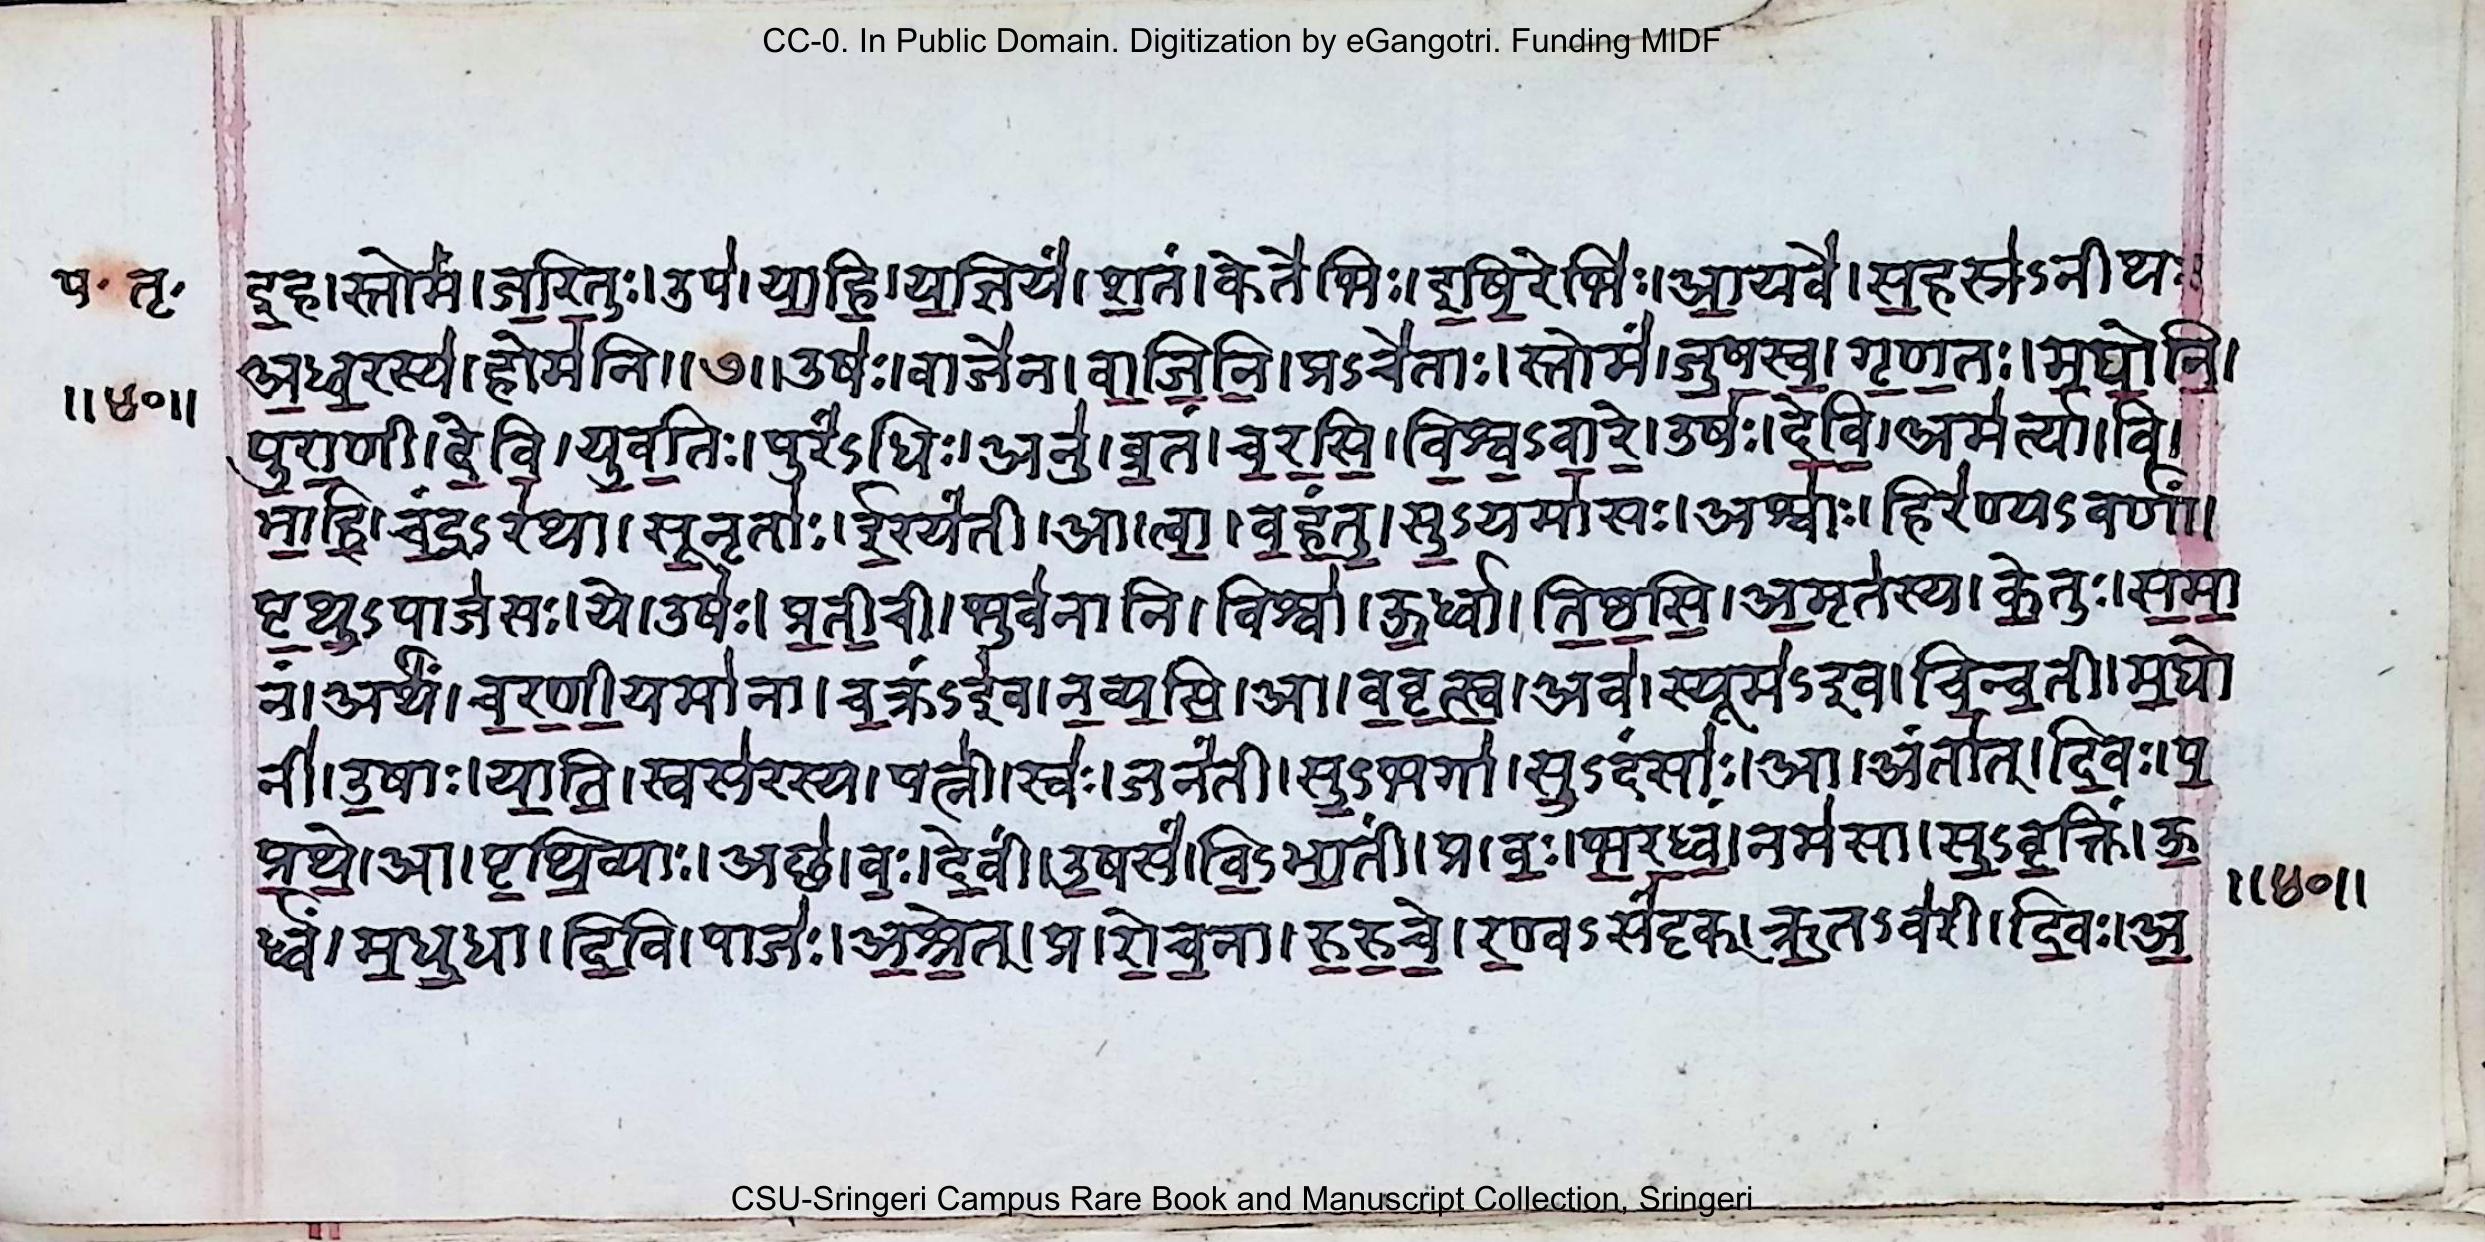 CC-0. In Public Domain. Digitization by eGangotri. Funding MIDF
ष॰ तृ॰
॥४०॥
इ॒ह।स्तोमं॑।ज॒रि॒तुः।उप॑।या॒हि॒।य॒ज्ञियं॑।श॒तं।केते॑भिः।इ॒षि॒रेभिः॑।आ॒यवे॑।स॒हस्र॑ऽनीथः
अ॒ध्व॒रस्य॑।होम॑नि॥७॥उषः॑।वाजे॑न।वा॒जि॒नि॒।प्रऽचे॑ताः।स्तोमं॑।जु॒ष॒स्व॒।गृ॒ण॒तः।म॒घो॒नि॒।
पु॒रा॒णी।दे॒वि॒।यु॒व॒तिः।पुरं॑ऽधिः।अनु॑।व्र॒तं।च॒र॒सि॒।वि॒श्व॒ऽवा॒रे॒।उषः॑।दे॒वि॒।अम॑र्त्या।वि।
भा॒हि॒।चं॒द्रऽर॑था।सू॒नृताः॑।ई॒रयं॑ती।आ।त्वा॒।व॒हं॒तु॒।सु॒ऽयमा॑सः।अश्वाः॑।हिर॑ण्यऽवर्णां।
पृ॒थु॒ऽपाज॑सः।ये।उषः॑।प्र॒ती॒ची।भुव॑नानि।विश्वा॑।ऊ॒र्ध्वा।ति॒ष्ठ॒सि॒।अ॒मृत॑स्य।के॒तुः।स॒मा॒
नं।अर्थं॑।च॒र॒णी॒यमा॑ना।च॒क्रंऽइ॑व।न॒व्य॒सि॒।आ।व॒वृ॒त्स्व॒।अव॑।स्यूम॑ऽइव।चि॒न्व॒ती।म॒घो
नी॑।उ॒षाः।या॒ति॒।स्वस॑रस्य।पत्नी॑।स्वः॑।जनं॑ती।सु॒ऽभगा॑।सु॒ऽदंसाः॑।आ।अंता॑त्।दि॒वः।प॒
प्र॒थे॒।आ।पृ॒थि॒व्याः।अछ॑।वः॒।दे॒वीं।उ॒षसं॑।वि॒ऽभा॒तीं।प्र।वः॒।भ॒र॒ध्वं॒।नम॑सा।सु॒ऽवृ॒क्तिं।ऊ॒
र्ध्वं।म॒धु॒धा।दि॒वि।पाजः॑।अ॒श्रे॒त्।प्र।रो॒च॒ना।रु॒रु॒चे॒।र॒ण्वऽसं॑दृक्।ऋ॒तऽव॑री।दि॒वः।अ॒
॥४०॥
CSU-Sringeri Campus Rare Book and Manuscript Collection, Sringeri